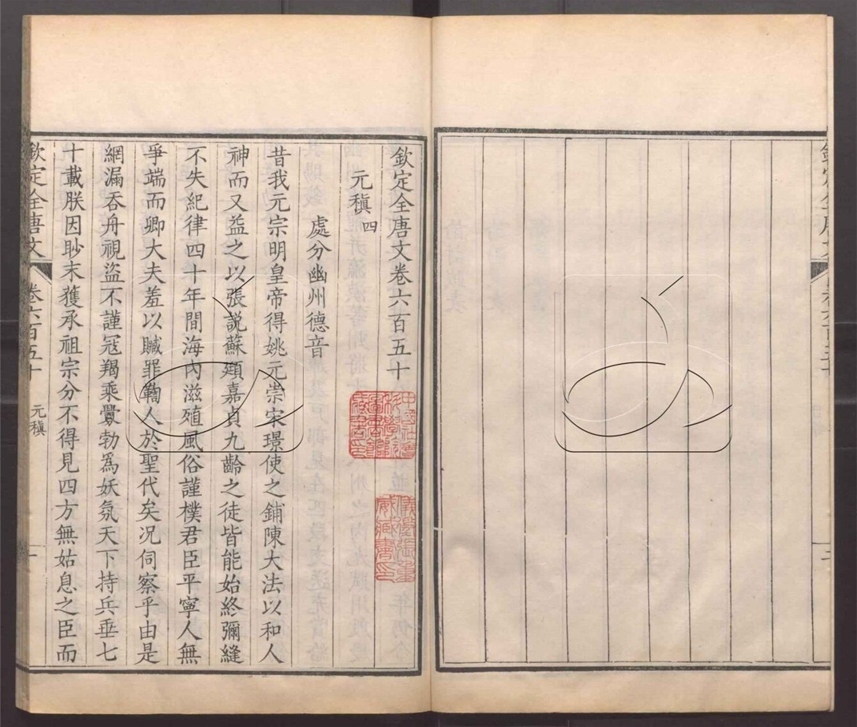 欽定全唐文卷六百五十
元稹四
處分幽州德音
昔我元宗明皇帝得姚元崇宋璟使之鋪陳大法以和人
神而又益之以張說蘇頲嘉貞九齡之徒皆能始終彌縫
不失紀律四十年間海內滋殖風俗謹樸君臣平寧人無
爭端而卿大夫羞以贓罪鞫人於聖代矣况伺察乎由是
網漏吞舟視盜不謹冦羯乘釁勃為妖氛天下持兵垂七
十載朕因眇末獲承祖宗分不得見四方無姑息之臣而
欽定全唐文
卷六百五十
元稹
一